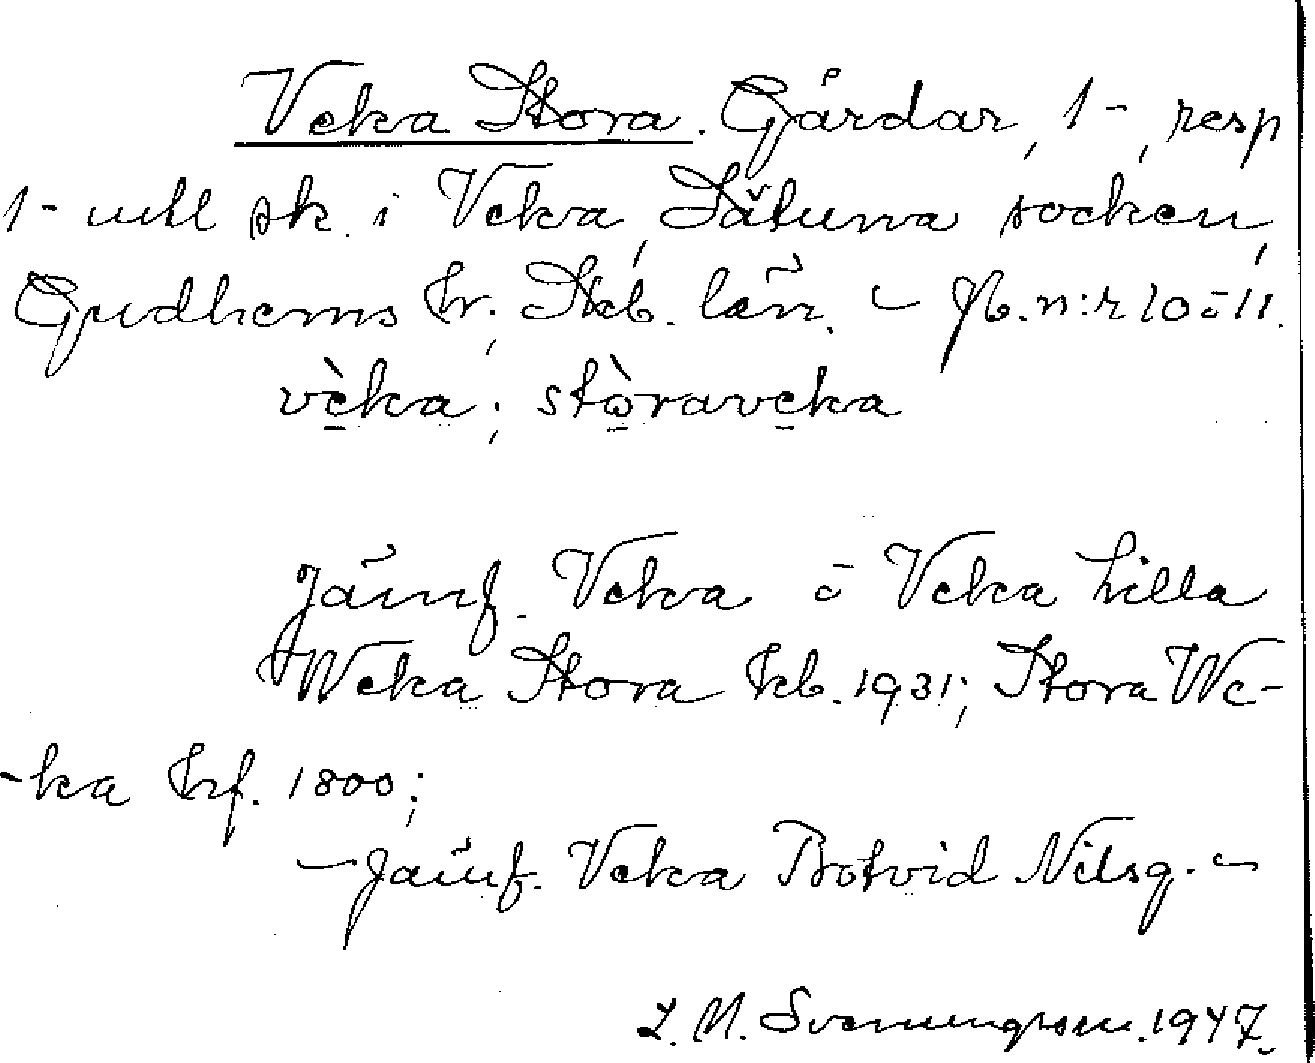 Veka Stora. Gårdar, 1-, resp
1- mtl sk. i Veka, Sätuna socken,
Gudhems hr; Skb. län. – Jb. n:r 10 o 11.
vèka; stòraveka
Jämf. Veka o Veka Lilla
Weka Stora kb. 1931; Stora We-
-ka krf. 1800;
– Jämf. Veka Botvid Nilsg. –
L. M. Svenungsson. 1947.